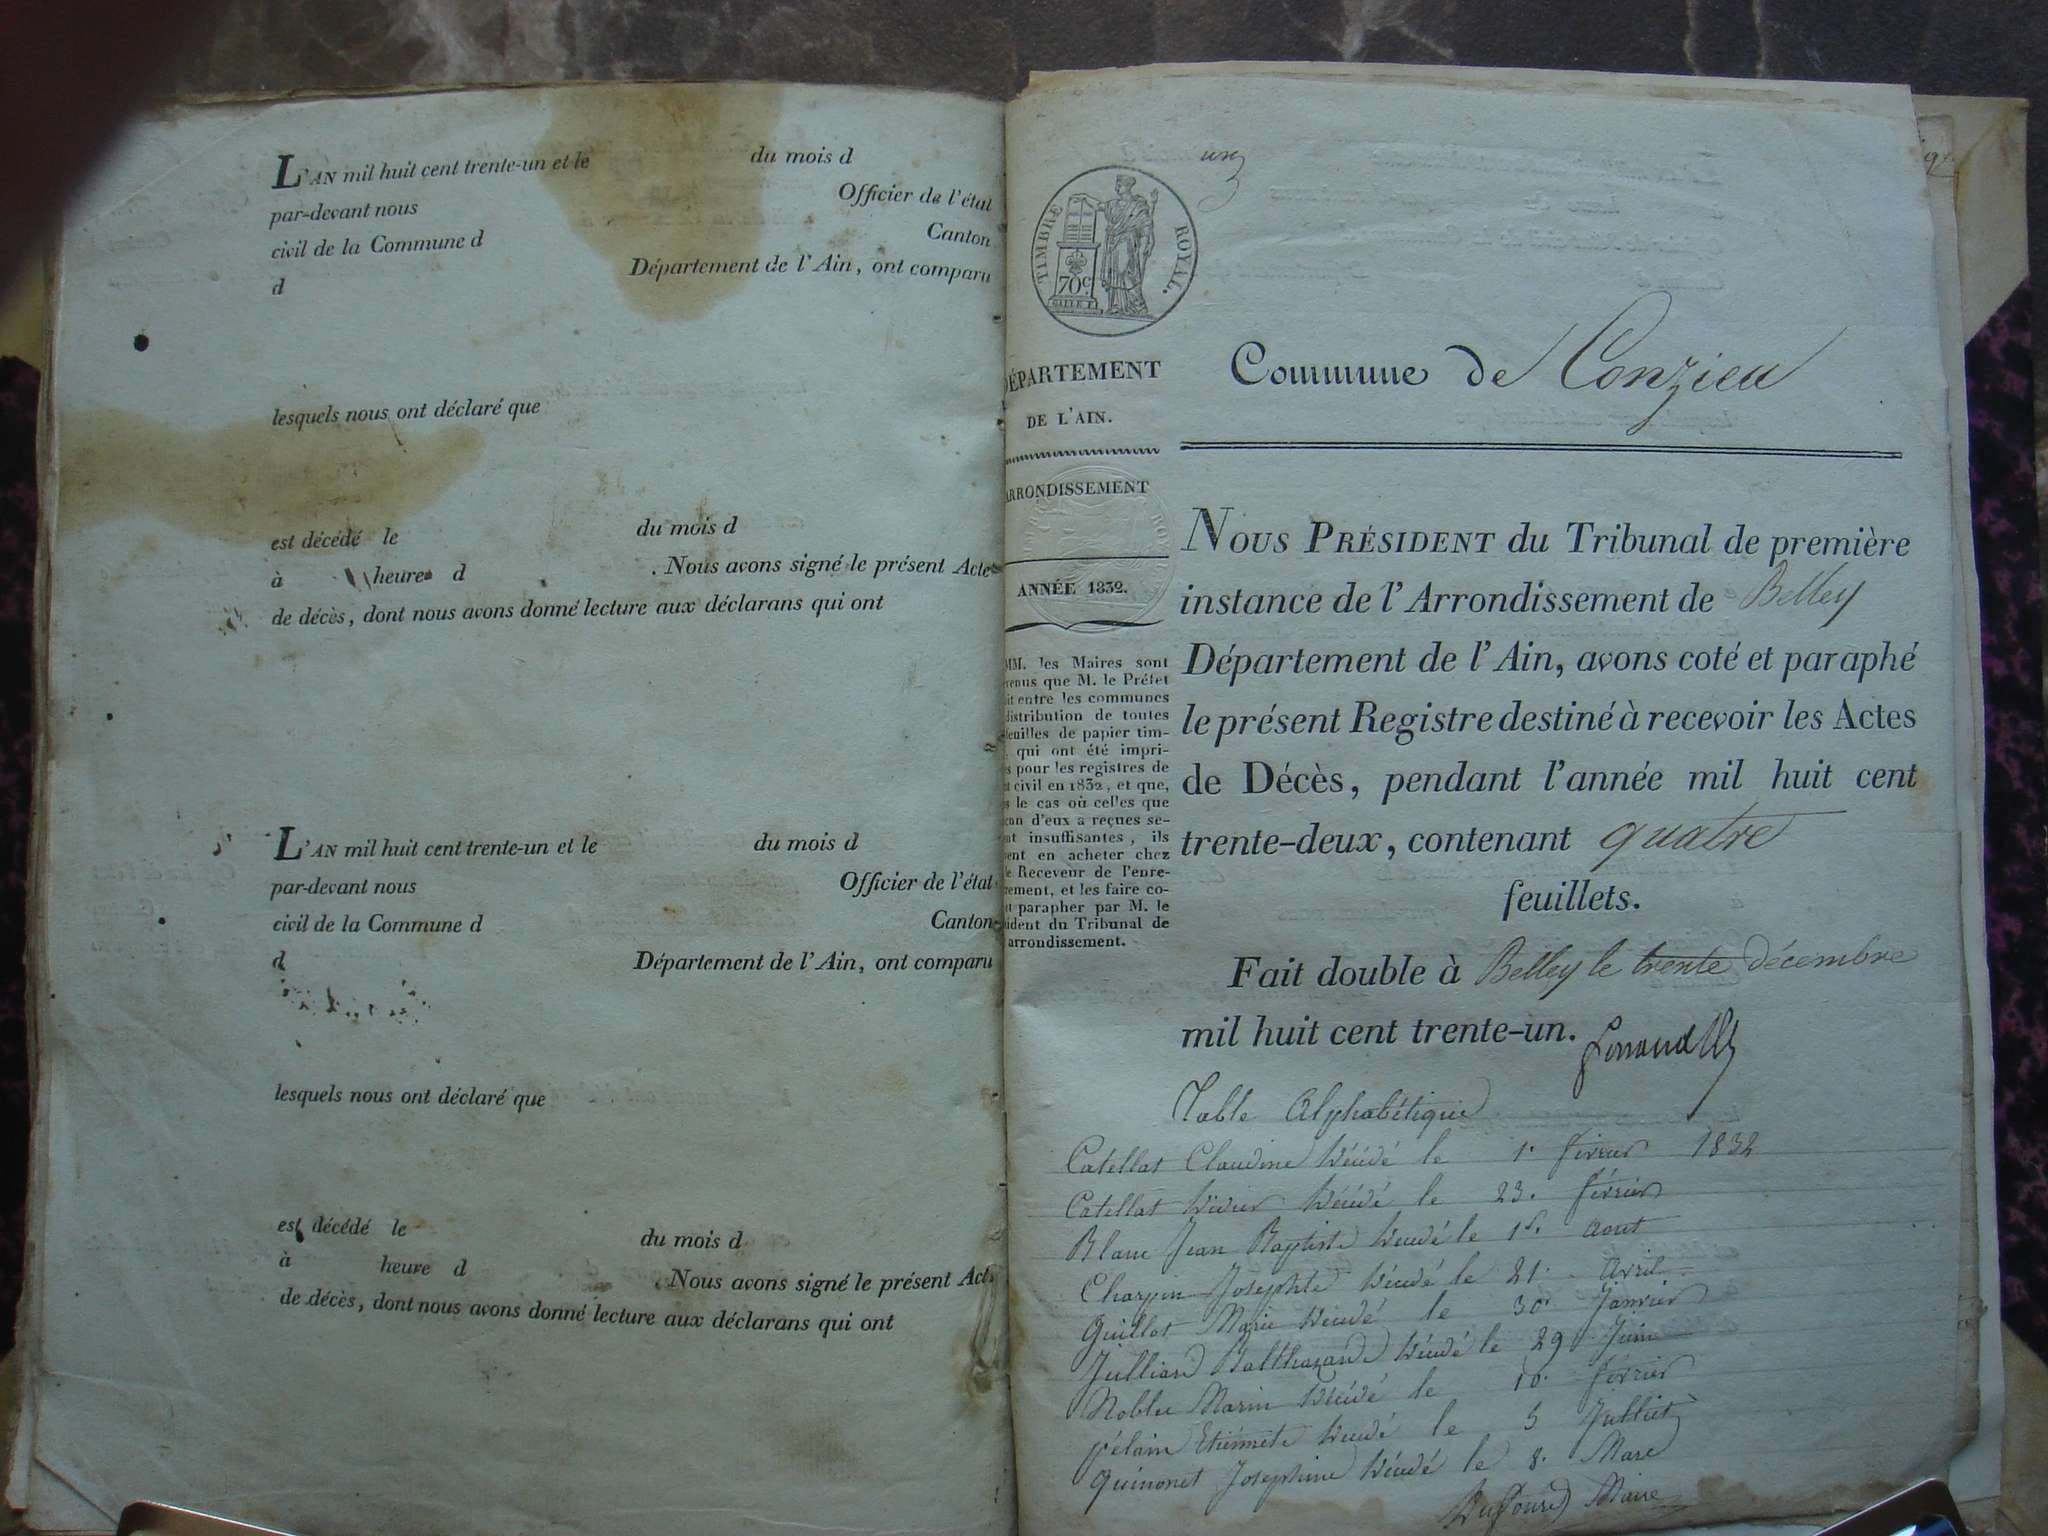 L'AN mil huit cent trente-un et le du mois d
par-devant nous Officier de l'état
civil de la Commune d Canton
d Département de l'Ain, ont comparu
lesquels nous ont déclaré que
est décédé le du mois d
à heure d . Nous avons signé le présent Acte
de décès, dont nous avons donné lecture aux déclarans qui ont
L'AN mil huit cent trente-un et le du mois d
par-devant nous Officier de l'état
civil de la Commune d Canton
d Département de l'Ain, ont comparu
lesquels nous ont déclaré que
est décédé le du mois d
à heure d . Nous avons signé le présent Acte
de décès, dont nous avons donné lecture aux déclarans qui ont
un
TIMBRE ROYAL.
70c
DÉPARTEMENT
DE L'AIN.
ARRONDISSEMENT
ANNÉE 1832.
MM. les Maires sont
venus que M. le Préfet
it entre les communes
distribution de toutes
feuilles de papier tim-
qui ont été impri-
s pour les registres de
t civil en 1832, et que,
s le cas où celles que
cun d'eux a reçues se-
nt insuffisantes, ils
ent en acheter chez
le Receveur de l'enre-
rement, et les faire co-
et parapher par M. le
sident du Tribunal de
arrondissement.
Commune de Conzieu
NOUS PRÉSIDENT du Tribunal de première
instance de l'Arrondissement de Belley
Département de l'Ain, avons coté et paraphé
le présent Registre destiné à recevoir les Actes
de Décès, pendant l'année mil huit cent
trente-deux, contenant quatre
feuillets.
Fait double à Belley le trente décembre
mil huit cent trente-un.
Table Alphabétique
Catellat Claudine Décédé le 1r février 1832
Catellat Didier Décédé le 23. février
Blanc Jean Baptiste Décédé le 1r. Aout
Charpin Josephte Décédé le 21. Avril
Guillot Marie Décédé le 30. Janvier
Julliard Balthazard Décédé le 29 Juin
Noblee Marin Décédé le 10. février
pélain Etiennete Décédé le 5 Julliet
Quinonet Josephine Décédé le 8. Mare
Dufour Maire